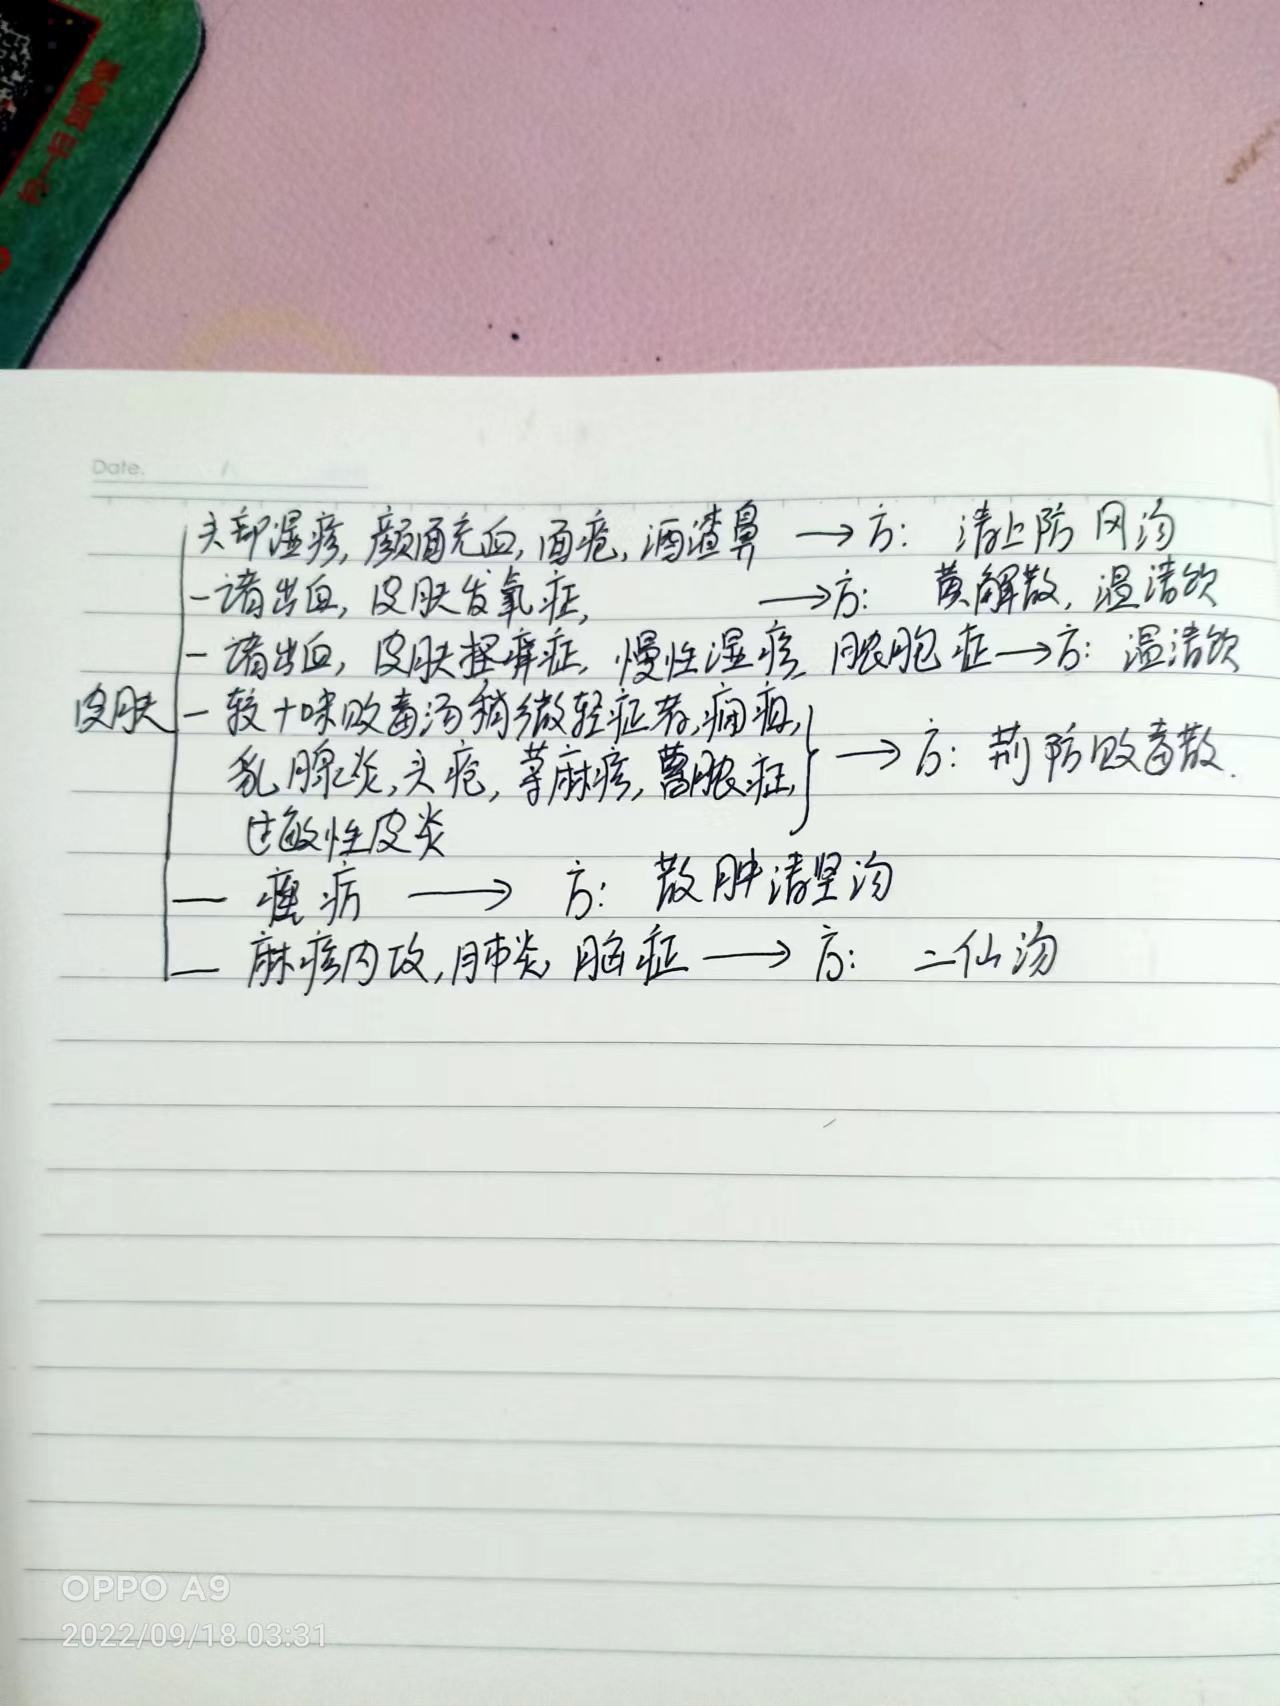 扫一扫
Date. /
头部湿疹, 颜面充血, 面疱, 酒渣鼻 → 方: 清上防风汤
- 诸出血, 皮肤发氧症, → 方: 黄解散, 温清饮
- 诸出血, 皮肤搔痒症, 慢性湿疹, 脓胞症 → 方: 温清饮
皮肤 - 较十味败毒汤稍微轻症者, 痈疽,
乳腺炎, 头疮, 荨麻疹, 脓症, → 方: 荆防败毒散.
过敏性皮炎
— 方: 散肿清坚汤
— 麻疹内攻, 肺炎, 脑症 → 方: 二仙汤
OPPO A9
2022/09/18 03:31